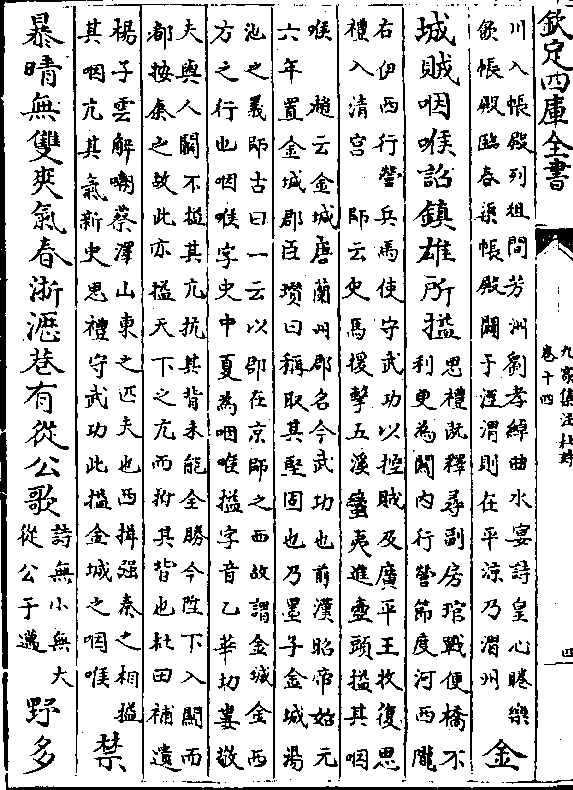 欽定四庫全書
九家集注杜詩
卷十四
四
川入帳殿列俎間芳洲劉孝綽曲水宴詩皇心睠樂
飲帳殿臨春渠帳殿闢于涇渭則在平涼乃渭州
金
城賊咽喉詔鎮雄所搤
思禮既釋尋副房琯戰便橋不
利更為關内行營節度河西隴
右伊西行營兵馬使守武功以控賊及廣平王收復思
禮入清宮 師云史馬援擊五溪蠻夷進壺頭搤其咽
喉 趙云金城唐蘭州郡名今武功也前漢昭帝始元
六年置金城郡臣瓚曰稱取其堅固也乃墨子金城湯
池之義師古曰一云以郡在京師之西故謂金城金西
方之行也咽喉字史中夏為咽喉搤字音乙革切婁敬
夫與人鬭不搤其亢抗其背未能全勝今陛下入關而
都按秦之故此亦搤天下之亢而拊其背也杜田補遺
楊子雲解嘲蔡澤山東之匹夫也西揖强秦之相搤
其咽亢其氣新史思禮守武功此搤金城之咽喉
禁
暴晴無雙爽氣春淅瀝巷有從公歌
詩無小無大
從公于邁
野多